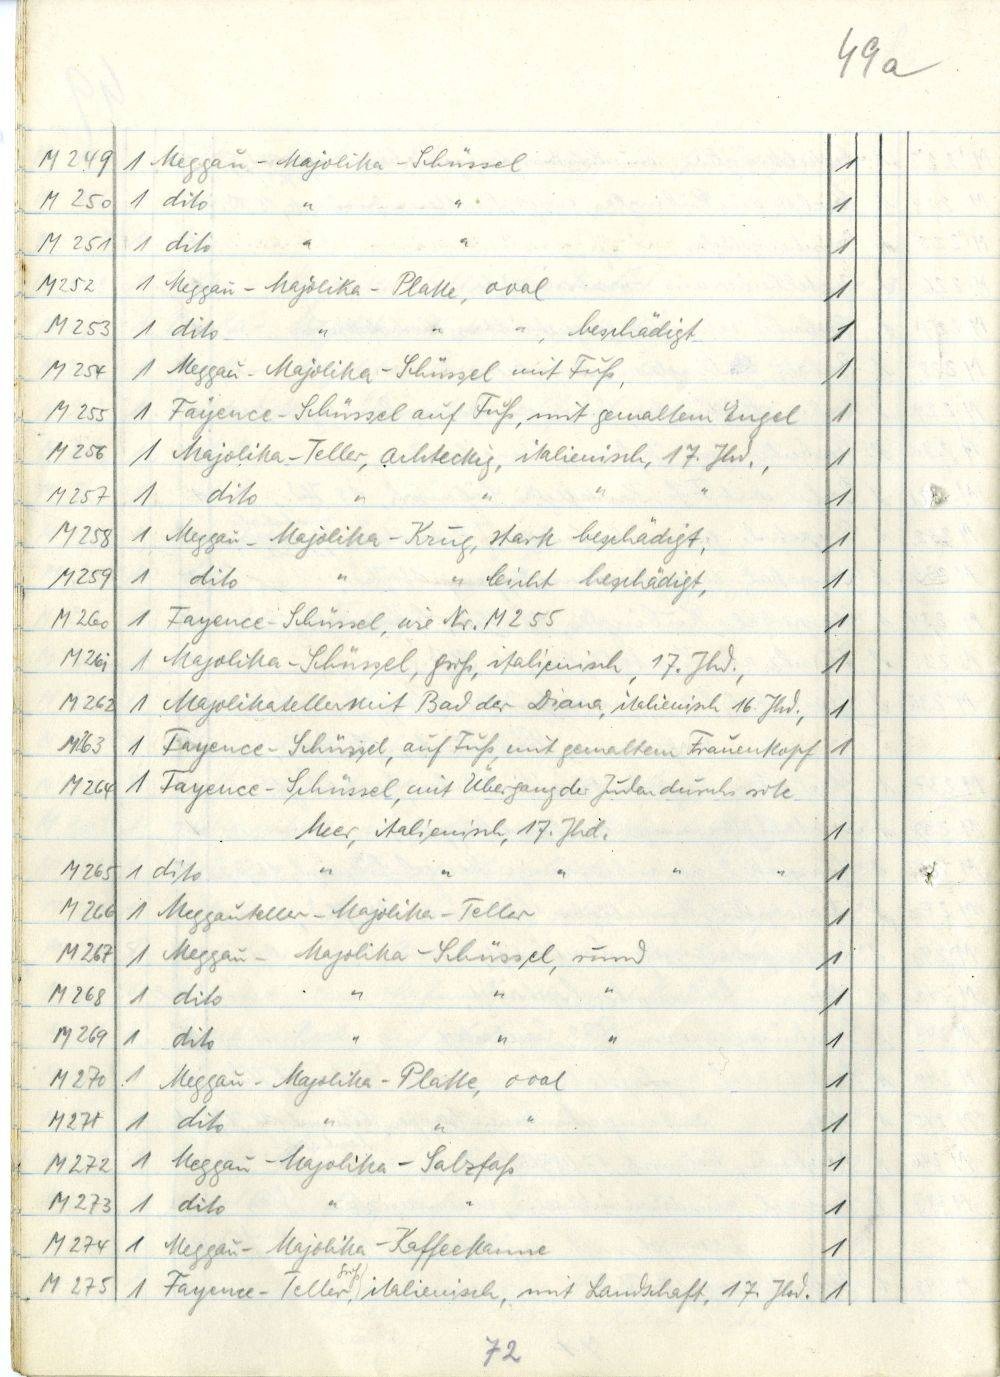 49a
M 249 1 Meggaŭ - Majolika - Schüssel 1
M 250 1 dito " " 1
M 251 1 dito " " 1
M 252 1 Meggaŭ - Majolika - Platte, oval 1
M 253 1 dito " " ", beschädigt 1
M 254 1 Meggaŭ - Majolika - Schüssel mit Fuß, 1
M 255 1 Fayence - Schüssel auf Fuß, mit gemaltem Engel 1
M 256 1 Majolika - Teller, achteckig, italienisch, 17. Jhd., 1
M 257 1 dito " " " " 1
M 258 1 Meggaŭ - Majolika - Krŭg, stark beschädigt, 1
M 259 1 dito " " leicht beschädigt, 1
M 260 1 Fayence - Schüssel, wie Nr. M 255 1
M 261 1 Majolika - Schüssel, groß, italienisch, 17. Jhd., 1
M 262 1 Majolikateller mit Bad der Diana, italienisch 16. Jhd., 1
M 263 1 Fayence - Schüssel, auf Fuß, mit gemaltem Frauenkopf 1
M 264 1 Fayence - Schüssel, mit Übergang der Juden durchs rote
Meer, italienisch, 17. Jhd. 1
M 265 1 dito " " " " " 1
M 266 1 Meggaŭteller - Majolika - Teller 1
M 267 1 Meggaŭ - Majolika - Schüssel, rŭnd 1
M 268 1 dito " " " 1
M 269 1 dito " " " 1
M 270 1 Meggaŭ - Majolika - Platte, oval 1
M 271 1 dito " " " 1
M 272 1 Meggaŭ - Majolika - Salzfaß 1
M 273 1 dito " " 1
M 274 1 Meggaŭ - Majolika - Kaffeekanne 1
M 275 1 Fayence - Teller, groß, italienisch, mit Landschaft, 17. Jhd. 1
72